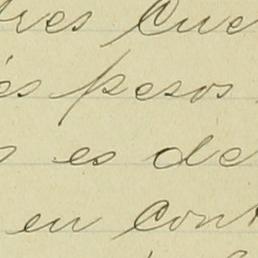 tres Cue
és pesos
es de
en Cont